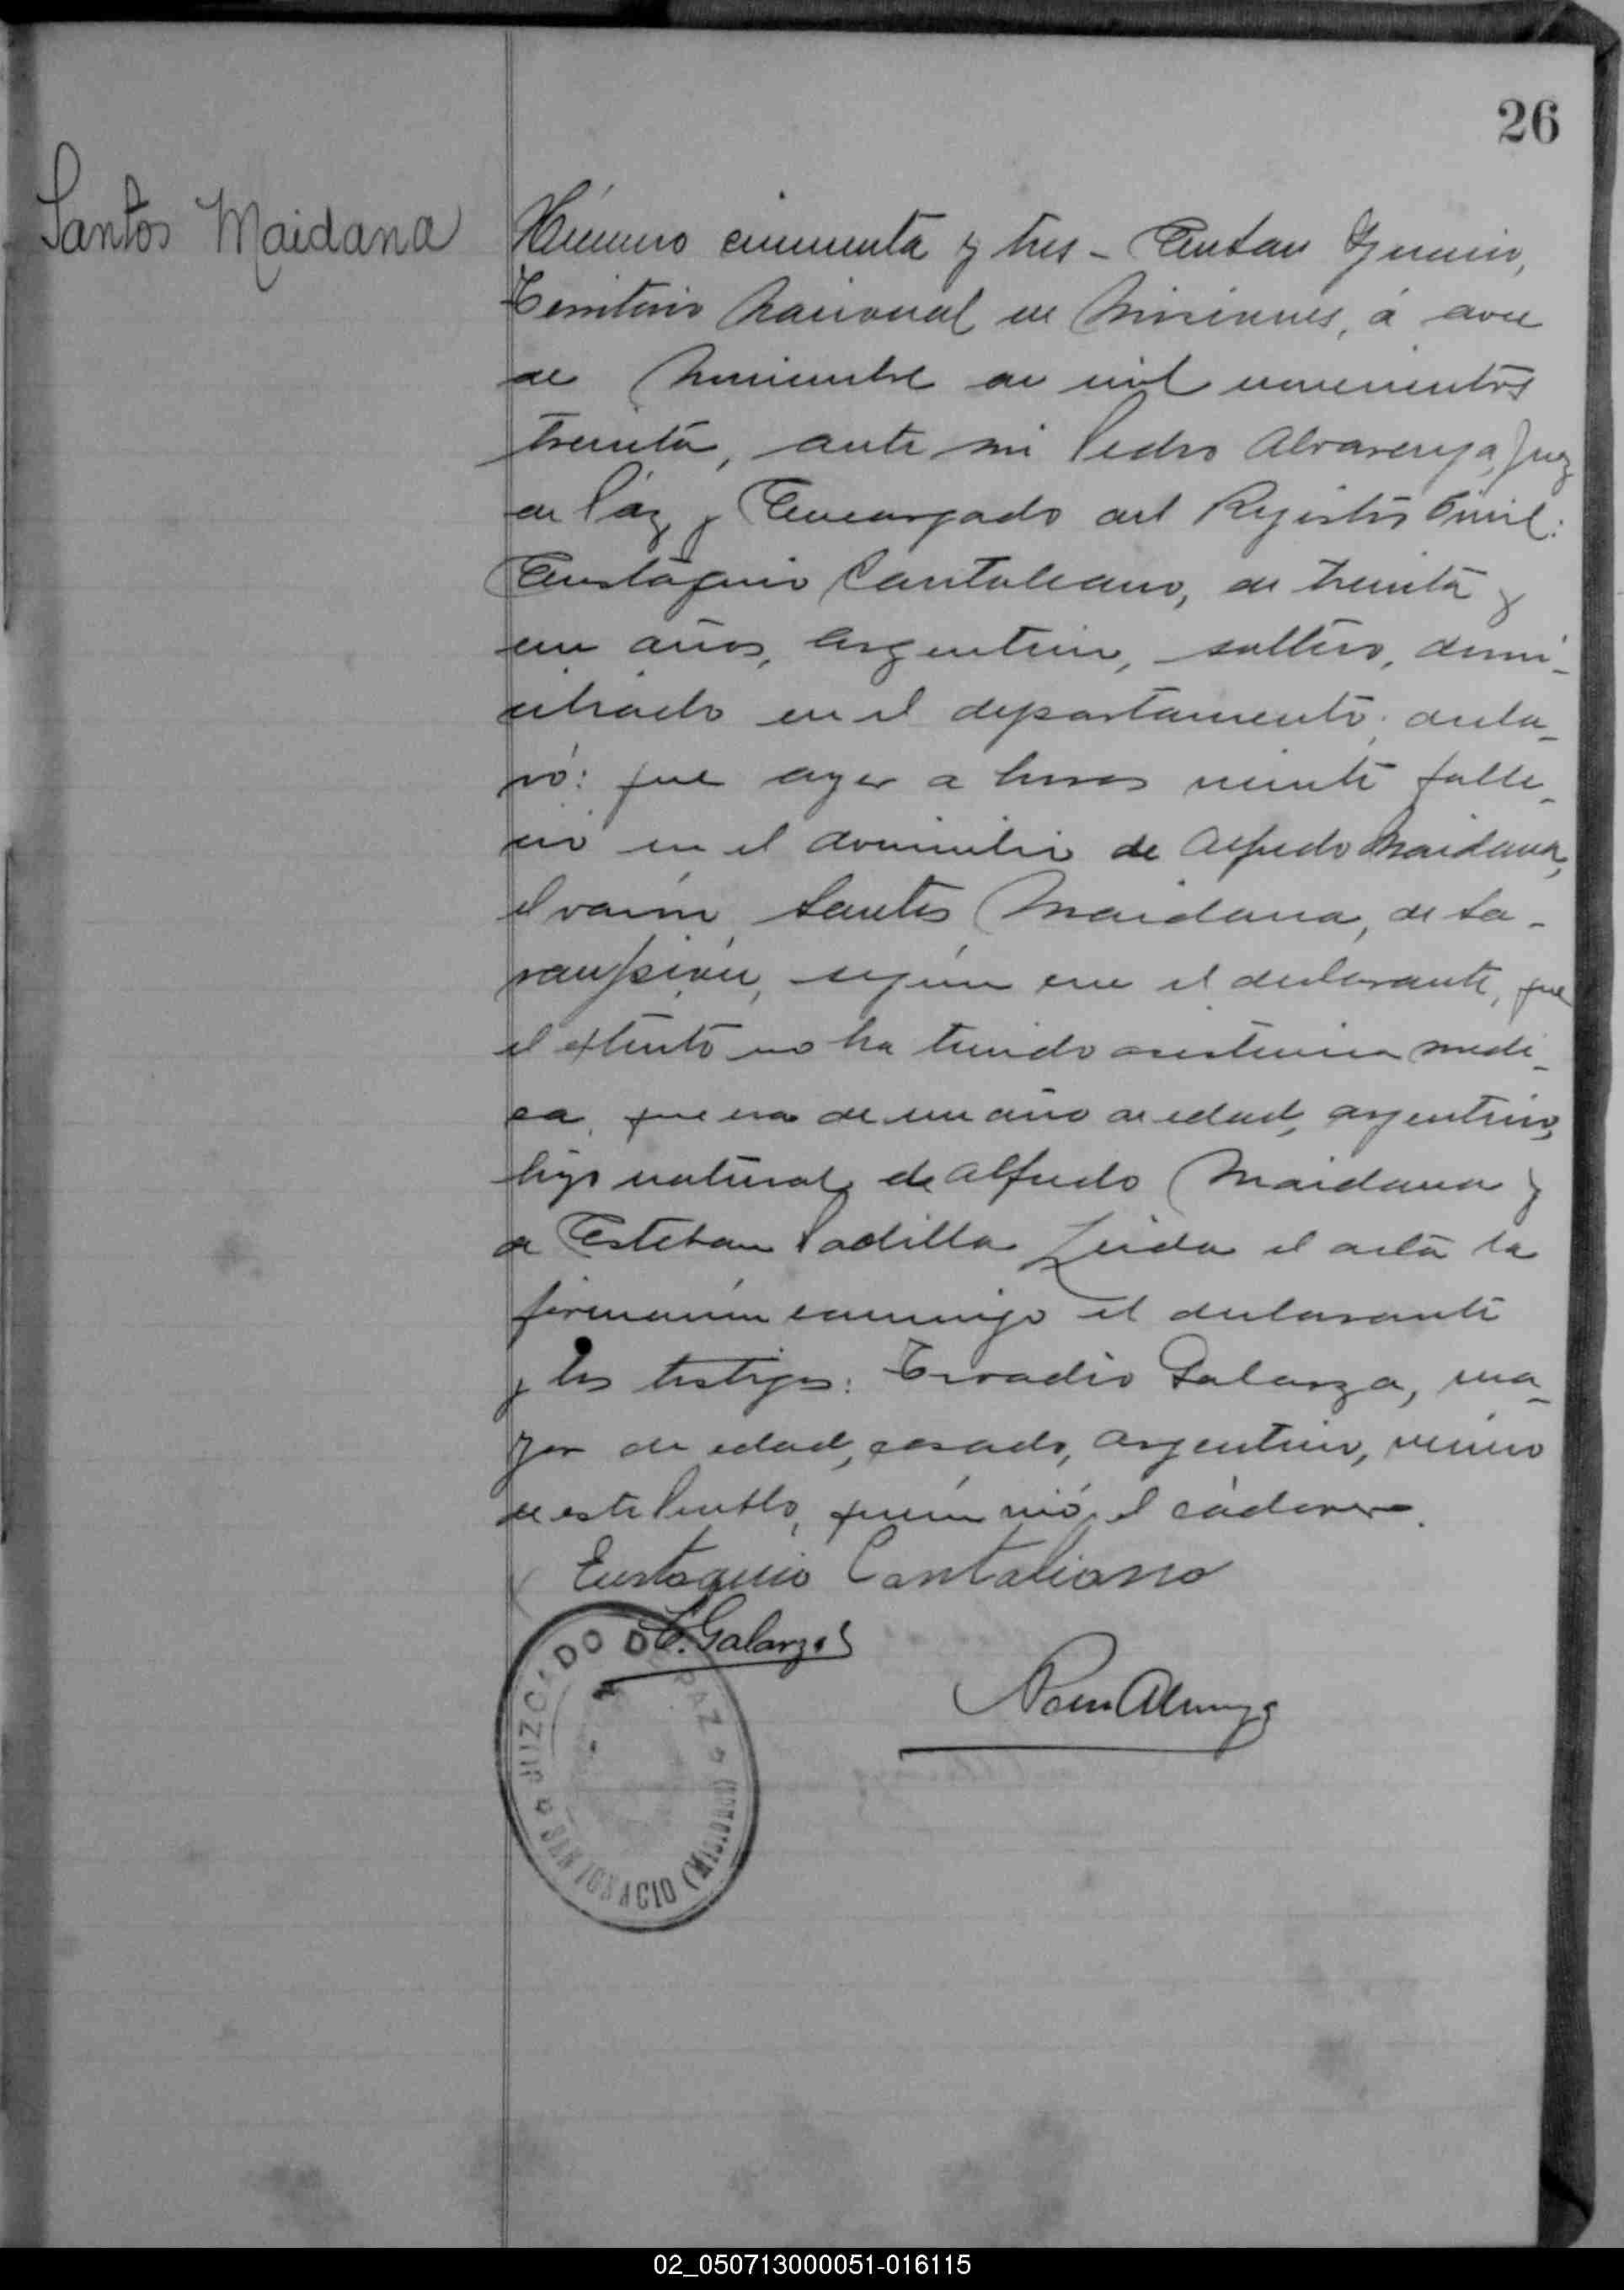 26
Santos Maidana
Número cincuenta y tres - En San Ignacio,
Territorio Nacional de Misiones, á doce
de Noviembre de mil novecientos
treinta, ante mi Pedro Alvarenga, Juez
de Páz y Encargado del Registro Civil:
Eustaquio Cantaliano, de treinta y
un años, argentino, soltero, domi-
ciliado en el departamento, decla-
ró: que ayer a horas veinte falle-
ció en el domicilio de Alfredo Maidana,
el varón Santos Maidana, de sa-
rampión, según cree el declarante, que
el extinto no ha tenido asistencia medi-
ca, que era de un año de edad, argentino,
hijo natural de Alfredo Maidana y
de Esteban Padilla Leida el acta la
firmaron conmigo el declarante
y los testigos: Galarza, ma-
yor de edad, casado, argentino, vecino
de este Pueblo, quién vió el cadaver.
Eustaquio Cantaliano
Galarza
JUZGADO DE PAZ
SAN IGNACIO (MISIONES)
02_050713000051-016115